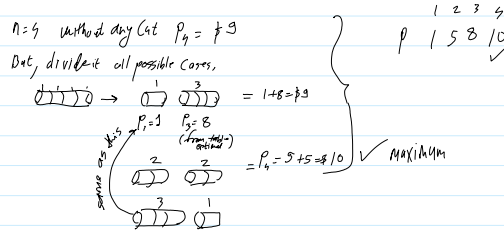 n=4 without any Cut P4 = $9
But, divide it all possible cases,
1 3
= 1+8=$9
P1=1 P3=8
(from table
optimal)
same as this
2 2
= P4 = 5+5=$10
maximum
3 1
1 2 3 4
P 1 5 8 10